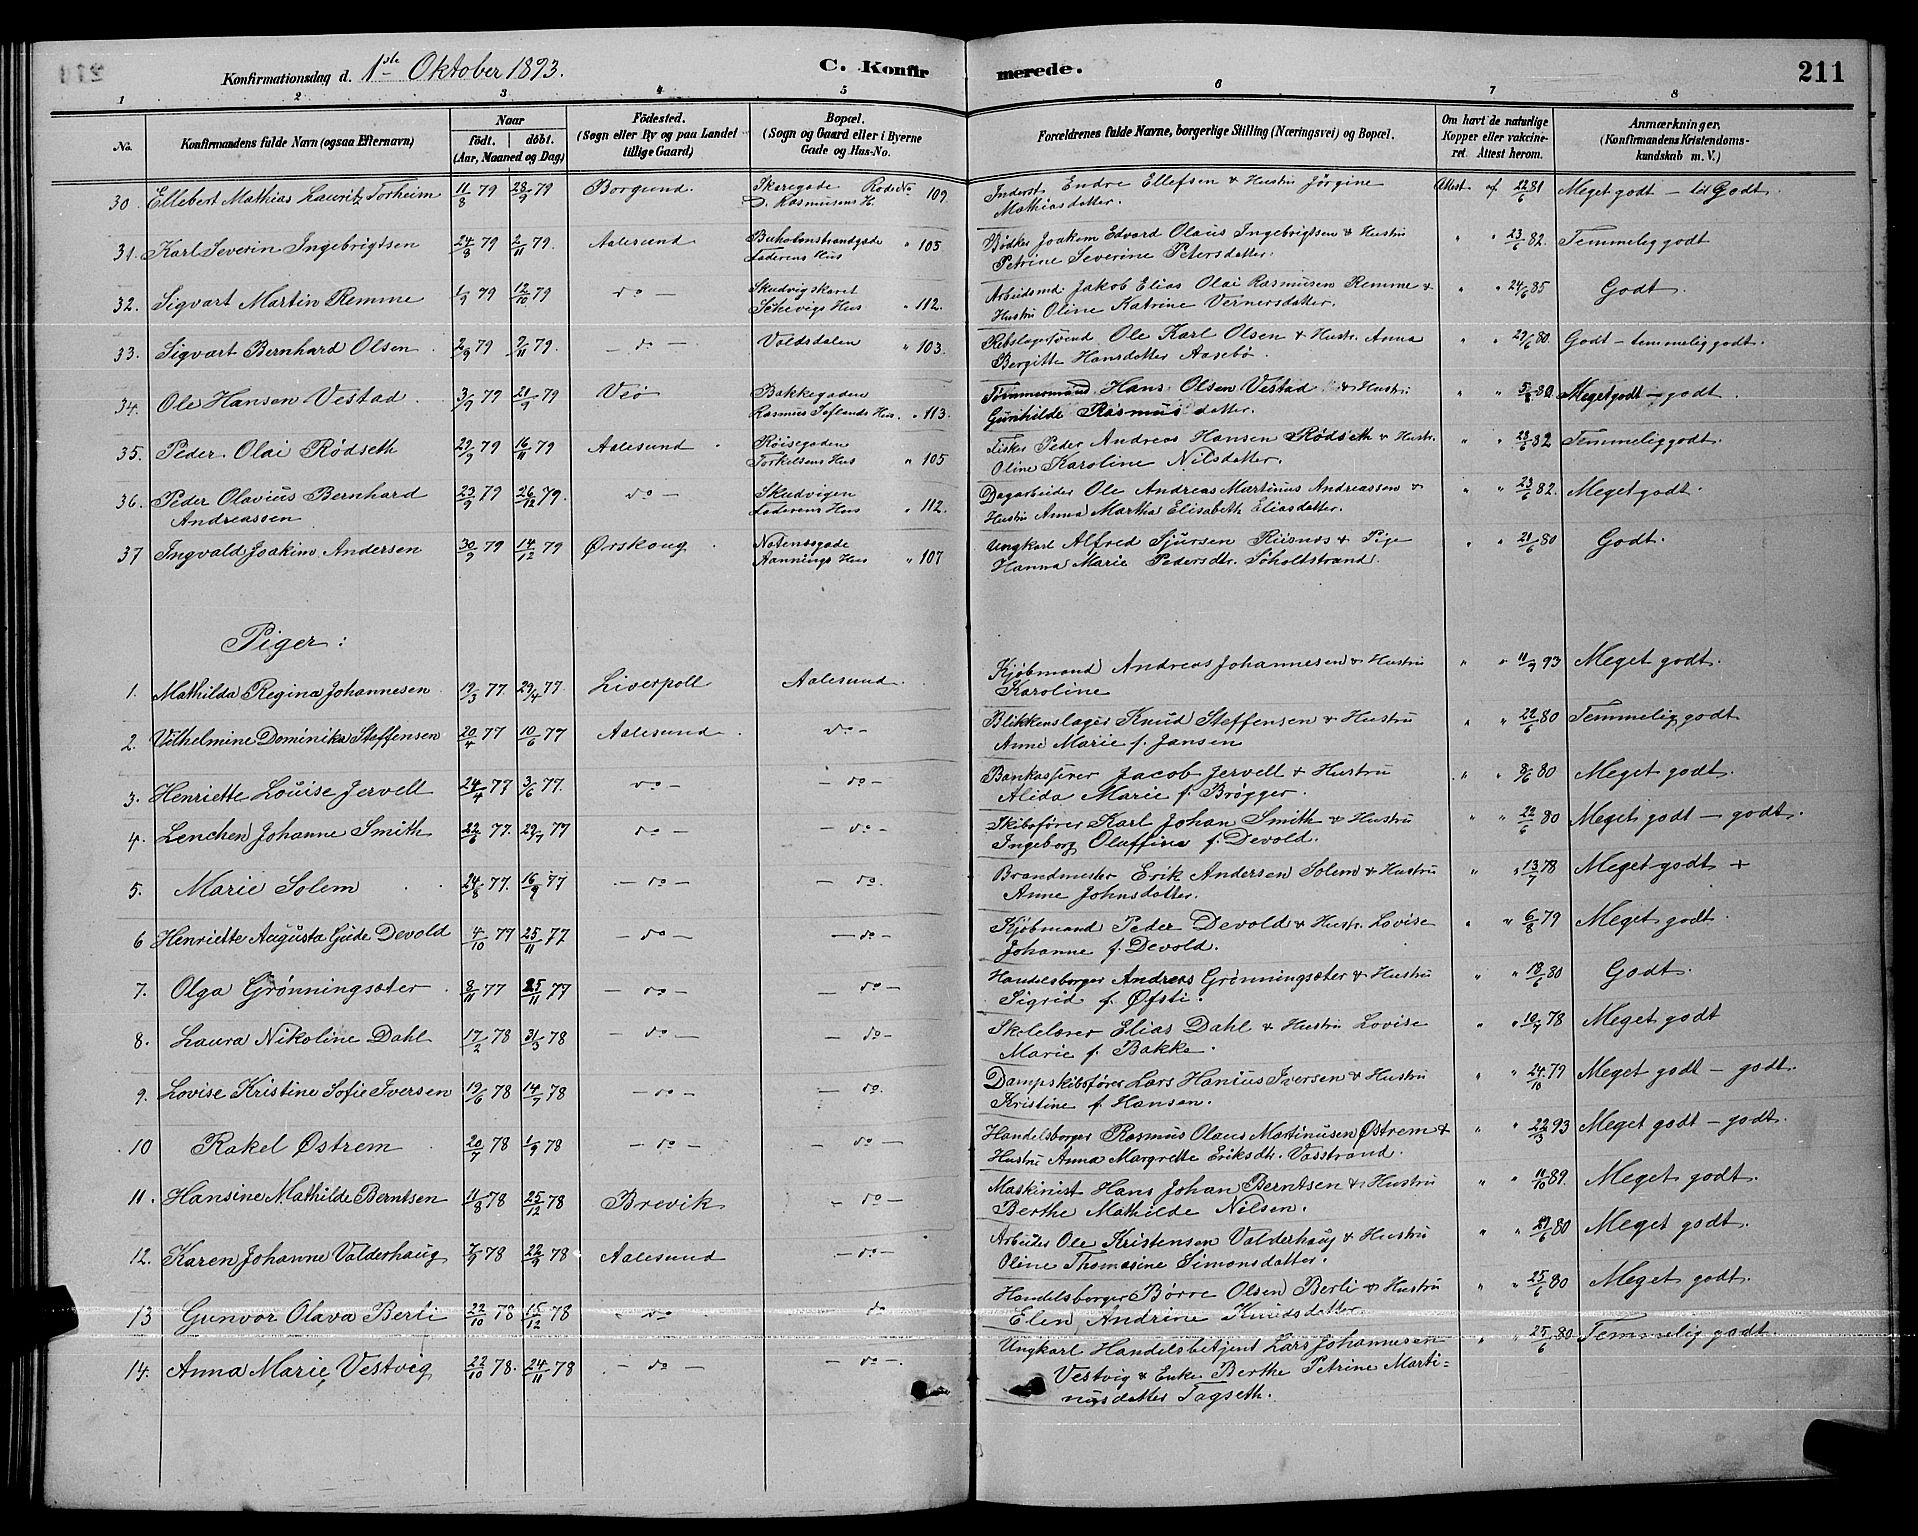 Konfirmationsdag d. 1ste Oktober 1893. C. Konfirmerede. 211
1 2 3 4 5 6 7 8
No. Konfirmandens fulde Navn (ogsaa Efternavn) Naar födt. döbt. (Aar, Maaned og Dag) Födested. (Sogn eller By og paa Landet tillige Gaard) Bopæl. (Sogn og Gaard eller i Byerne Gade og Hus-No. Forældrenes fulde Navne, borgerlige Stilling (Næringsvei) og Bopæl. Om havt de naturlige Kopper eller vakcineret. Attest herom. Anmærkninger. (Konfirmandens Kristendomskundskab m. V.)
30. Ellebert Mathias Lauritz Torheim 11/8 79 28/9 79 Borgund. Skaregade Rode No 109. Rasmusens H. Inderst Endre Ellefsen & Hustru Jörgine Mathiasdatter. Attest af 22/6 81 Meget godt – Godt.
31. Karl Severin Ingebrigtsen 24/8 79 2/11 79. Aalesund Buholmstrandgade Faderens Hus " 105 Bødker Joakim Edvard Olaus Ingebrigtsen & Hustru Petrine Severine Petersdatter. " " 23/6 82. Temmelig godt
32. Sigvart Martin Remme 1/9 79 12/10 79 do – Skudvigskaret Schevigs Hus " 112. Arbeidsmd. Jakob Elias Olai Rasmusen Remme & Hustru Oline Katrine Vernersdatter. " " 24/6 85 Godt.
33. Sigvart Bernhard Olsen 2/9 79 2/11 79. – do – Voldsdalen " 103. Rebslagersvend Ole Karl Olsen & Hustr. Anna Bergitte Hansdatter Aasebø. " " 29/6 80. Godt – temmelig godt.
34. Ole Hansen Vestad 3/9 79 21/9 79 Veö Bakkegaden Rasmus Hus. " 113. Tømmermand Hans Olsen Vestad & Hustru Gunhilde Rasmusdatter. " " 5/8 80 Meget godt – godt.
35. Peder Olai Rödseth 29/9 79 16/11 79 Aalesund Röisegaden Torkelsens Hus " 105 Fisker Peder Andreas Hansen Rødseth & Hustr. Oline Karoline Nilsdatter. " " 22/6 82 Temmelig godt.
36. Peder Olavius Bernhard Andreassen 23/9 79 26/12 79. do – Skudvigen Faderens Hus " 112. Dagarbeider Ole Andreas Martinus Andreassen & Hustru Anna Martha Elisabeth Eliasdatter. " " 23/6 82. Meget godt.
37 Ingvald Joakim Andersen 30/9 79 14/12 79 Ørskoug Notenesgade Aannings Hus " 107 Ungkarl Alfred Sjursen Riisnes & Pige Hanna Marie Pedersdtr. Söholtstrand. " " 21/6 80 Godt.
Piger:
1. Mathilda Regina Johannesen 19/3 77. 29/4 77. Liverpoll Aalesund. Kjøbmand Andreas Johannesen & Hustru Karoline " " 11/9 93 Meget godt.
2. Vilhelmine Dominika Steffensen 20/4 77 10/6 77 Aalesund do – Blikkenslager Knud Steffensen & Hustru Anne Marie f. Jansen " " 22/6 80 Temmelig godt
3. Henriette Louise Jervell 24/4 77 3/6 77. do – – do – Bankasserer Jacob Jervell & Hustru Alida Marie f. Brøgger. " " 8/6 80 Meget godt.
4. Lenchen Johanne Smith 22/6 77. 29/7 77 do – – do – Skibsfører Karl Johan Smith & Hustru Ingeborg Olaffine f. Devold. " " 22/6 80 Meget godt – godt.
5. Marie Solem 24/8 77. 16/9 77 – do – – do. Brandmester Erik Andersen Solem & Hustru Anne Johnsdatter. " " 13/7 78 Meget godt +
6 Henriette Augusta Gude Devold 4/10 77 25/11 77 – do – – do – Kjøbmand Peder Devold & Hustr. Lovise Johanne f. Devold. " " 6/8 79 Meget godt.
7. Olga Grönningsæter 8/11 77 25/11 77 – do – – do – Handelsborger Andreas Grønningsæter & Hustru Sigrid f. Øfsti. " " 18/6 80 Godt.
8. Laura Nikoline Dahl 17/2 78 31/3 78 – do – – do – Skolelærer Elias Dahl & Hustru Lovise Marie f. Bakke. " " 19/7 78 Meget godt
9. Lovise Kristine Sofie Iversen 19/6 78 14/7 78 – do – – do. Dampskibsfører Lars Hanius Iversen & Hustru Kristine f. Hansen. " " 24/10 79 Meget godt – godt.
10 Rakel Østrem 20/7 78 1/9 78 – do – – do – Handelsborger Rasmus Olaus Martinusen Østrem & Hustru Anna Margrethe Eriksdtr. Vasstrand. " " 22/3 93 Meget godt – godt.
11. Hansine Mathilde Berntsen 11/8 78 25/12 78 Brevik – do – Maskinist Hans Johan Berntsen & Hustru Berthe Mathilde Nilsen. " " 11/10 89. Meget godt.
12. Karen Johanne Valderhaug 7/9 78 22/9 78 Aalesund – do – Arbeider Ole Kristensen Valderhaug & Hustru Oline Thomasine Simonsdatter. " " 29/6 80 Meget godt.
13 Gunvor Olava Berli 22/10 78 15/12 78 – do – do Handelsborger Børre Olsen Berli & Hustru Elen Andrine Knudsdatter " " 25/6 80 Meget godt.
14. Anna Marie Vestvig 22/10 78. 24/11 78 – do – – do –. Ungkarl Handelsbetjent Lars Johannesen Vestvig & Enke Berthe Petrine Martinusdatter Tagseth. " " 25/6 80 Temmelig godt.